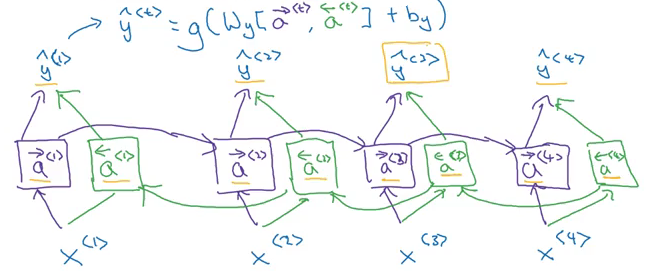 ŷ^<t> = g(Wy[a→^<t>, a←^<t>] + by)
ŷ^<1> ŷ^<2> ŷ^<3> ŷ^<4>
a→^<1> a←^<1> a→^<2> a←^<2> a→^<3> a←^<3> a→^<4> a←^<4>
x^<1> x^<2> x^<3> x^<4>